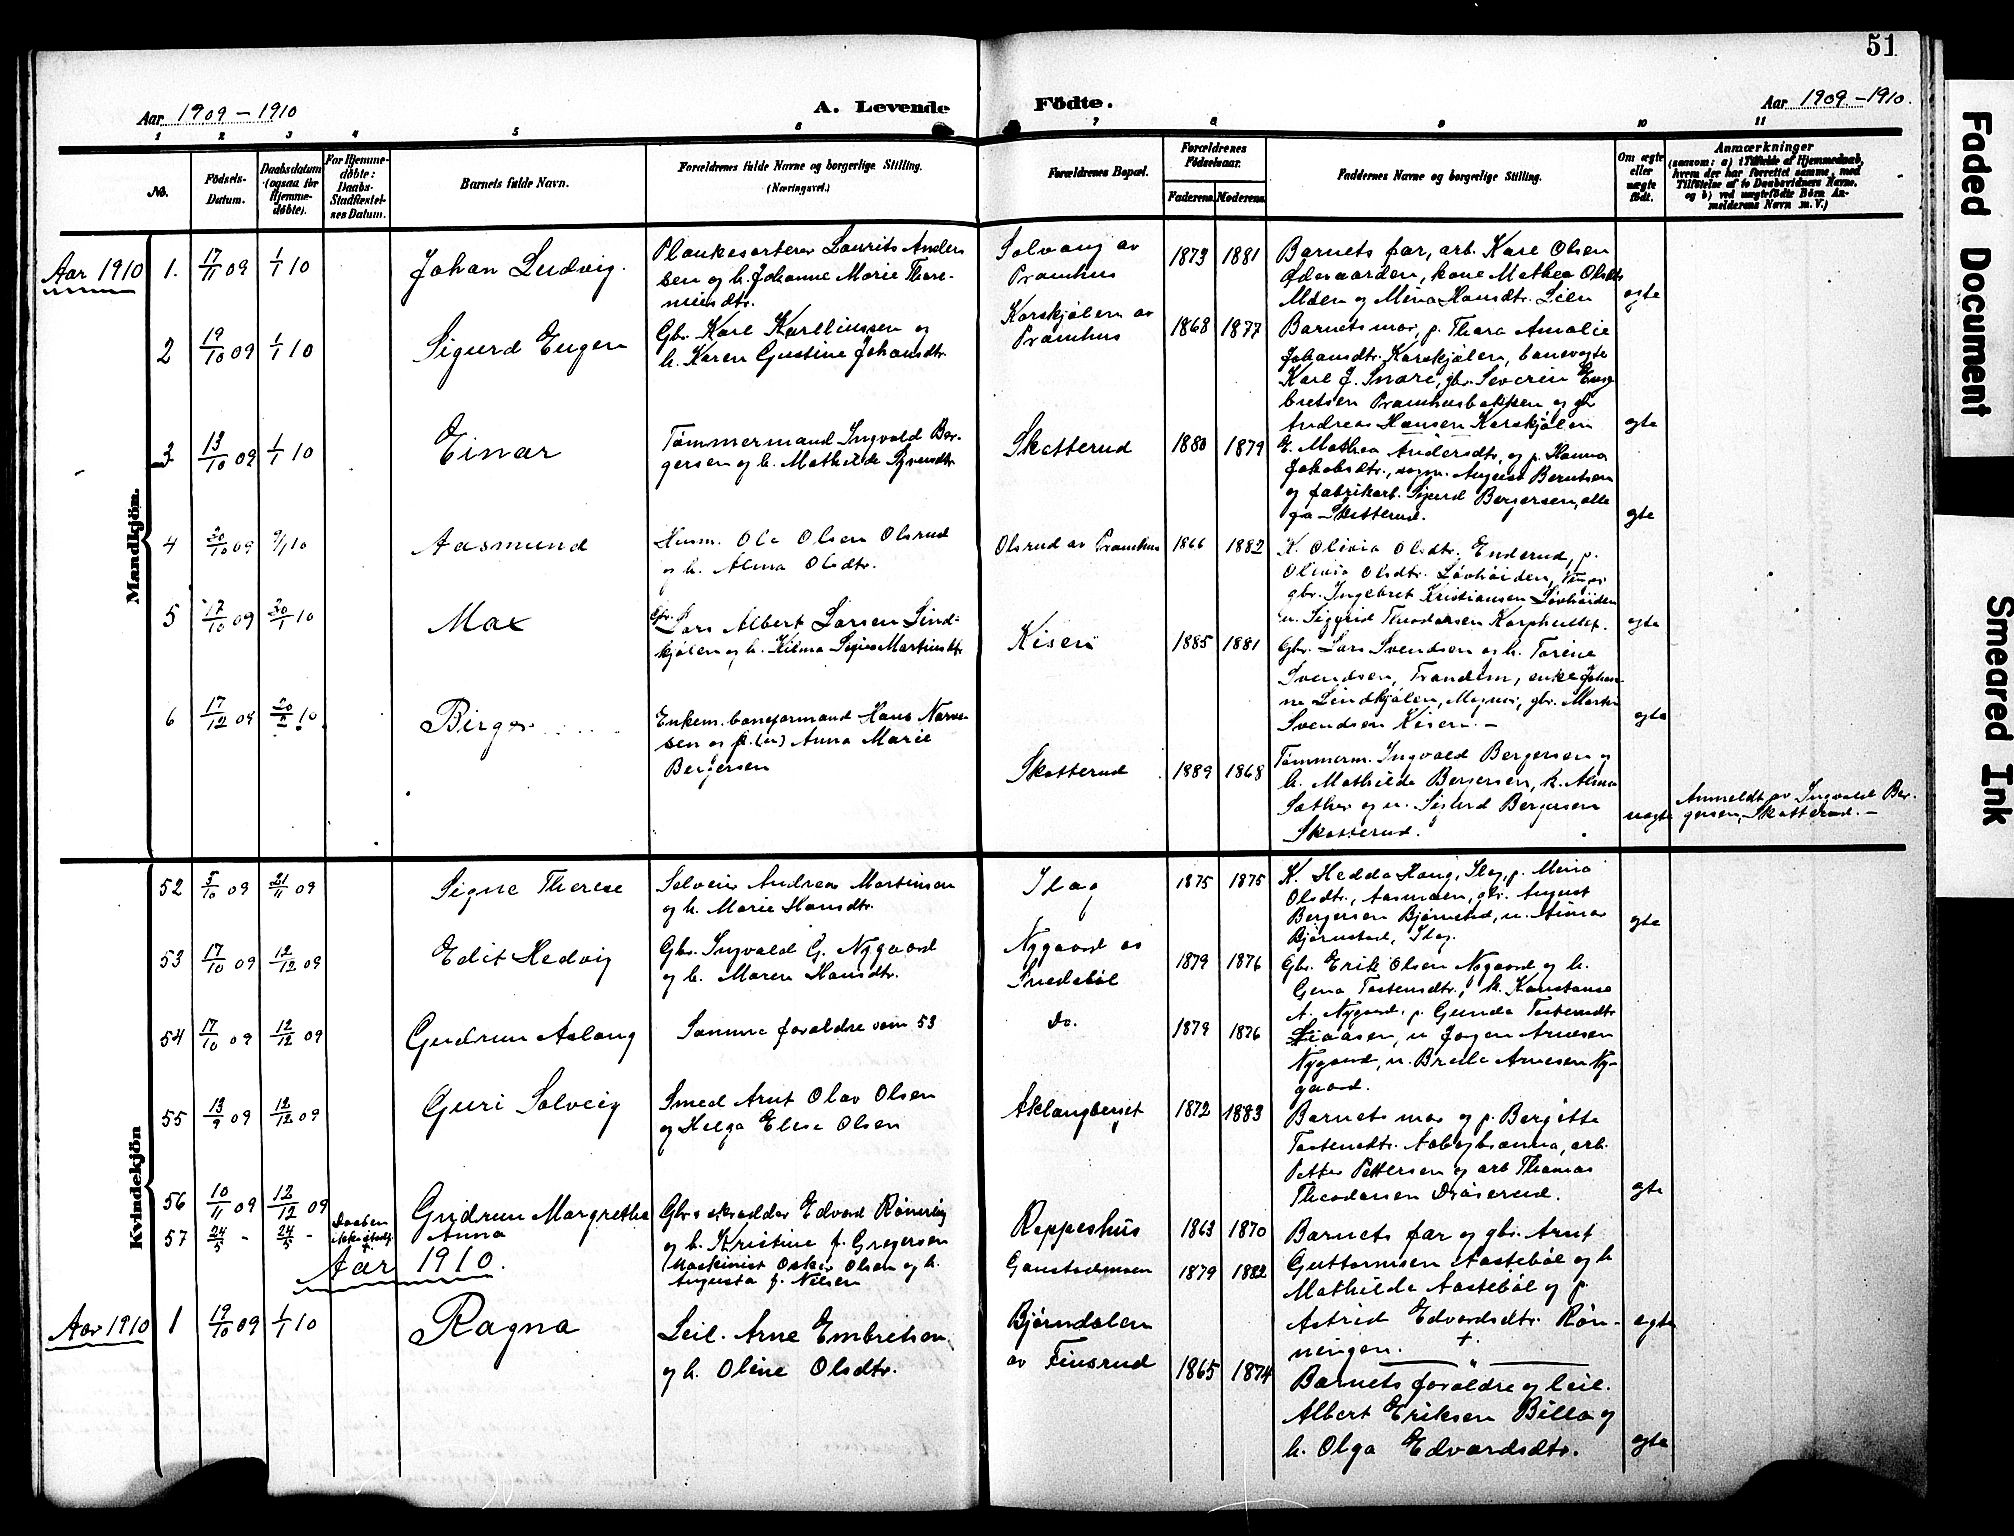 51
Aar 1909 - 1910
A. Levende
Födte.
Aar 1909 - 1910.
1 2 3 4 5 6 7 8 9 10 11
No.
Födsels-
Datum.
Daabsdatum
(ogsaa for
Hjemme-
døbte).
For Hjemme-
døbte:
Daabs-
Stadfæstel-
ses Datum.
Barnets fulde Navn.
Forældrenes fulde Navne og borgerlige Stilling.
(Næringsvei.)
Forældrenes Bopæl.
Forældrenes
Födselsaar.
Faderens. Moderens.
Faddernes Navne og borgerlige Stilling.
Om ægte
eller
uægte
født.
Anmærkninger
(saasom: a) i Tilfælde af Hjemmedaab,
hvem der har forrettet samme, med
Tilføielse af to Daabsvidners Navne,
og b) ved uægtefødte Børn An-
melderens Navn m. V.)
Mandkjön.
Aar 1910
1. 17/11 09 1/1 10
Johan Ludvig.
Plankesorterer Laurits Ander
sen og h. Johanne Marie Thore-
Solvang av
Pramhus
1873 1881
Barnets far, arb. Karl Olsen
kone Mathea Olsdtr
Moen og Mina Hansdtr. Lien
ægte
2 19/10 09 1/1 10
Sigurd Eugen
Gbr. Karl Karlinussen og
h. Karen Gustine Johansdtr.
Korskjølen av
Pramhus
1868 1877
Barnets mor, p. Thora Amalie
Johansdtr. Korskjølen, banevogte
Karl J. Snare, gbr. Severin Eng
bretsen Pramhusbakken og gbr
Andreas Hansen Korskjølen
ægte
3 13/10 09 1/1 10
Einar
Tømmermand Ingvald Ber-
gersen og h. Mathilde Syvendtr.
Skotterud
1880 1879
E. Mathea Andersdtr, og p. Hanna
Jakobsdtr., ungm. August Berntsen
og fabrikarb. Sigurd Bergersen, alle
pa Skotterud.
ægte
4 30/10 09 9/1 10
Aasmund
Husm. Ole Olsen Olsrud
og h. Alma Olsdtr.
Olsrud av Pramhus
1866 1882
K. Olivia Olsdtr. Enderud, p.
Olivia Olsdtr. Løvhøiden,
gbr. Ingebret Kristiansen Løvhøiden
u. Siggrid Theodorsen Korphullet.
ægte
5 17/10 09 30/1 10
Max
Gbr. Lars Albert Larsen Lind-
kjølen og h. Hilma Sofie Martinsdtr
Kisen
1885 1881
Gbr. Lars Svendsen og h. Torine
Svendsen, Trandem, enke Johan-
ne Lindkjølen, Magnor, gbr. Martin
Svendsen Kisen. -
ægte
6 17/12 09 20/2 10.
Birger
Enkem. baneformand Hans Narve-
sen og p. (u) Anna Marie
Bergersen
Skotterud
1889 1868
Tømmerm. Ingvald Bergersen og
h. Mathilde Bergersen, k. Alma
Sæther og u. Sigurd Bergersen
Skotterud.
uægte
Anmeldt av Ingvald Ber-
gersen, Skotterud. -
Kvindekjön
52 5/10 09 21/11 09
Signe Therese
Selveier Andreas Martinsen
og h. Marie Hansdtr.
Ilag
1875 1875
K. Hedda Haug, Ilag, p. Mina
Olsdtr., Aasmoen, gbr. August
Bergersen Bjørnstad, u.
Bjørnstad, Ilag.
ægte
53 17/10 09 12/12 09
Edit Hedvig
Gbr. Ingvald G. Nygaard
og h. Maren Hansdtr.
Nygaard av
1879 1876
Gbr. Erik Olsen Nygaard og h.
Gena Tostensdtr., k. Konstanse
A. Nygaard, p. Gunda Tostensdtr
54 17/10 09 12/12 09
Gudrun Aslaug
Samme forældre som 53
Do.
1879 1876
Liaasen, u Jørgen Arnesen
Nygaard, u. Arnesen Ny-
gaard.
55 13/9 09 12/12 09
Guri Solveig
Smed Arnt Olav Olsen
og Helga Elise Olsen
Aklangberget
1872 1883
Barnets mor og p. Bergitte
Tostensdtr. arb.
Petter Pettersen og arb Thomas
Theodorsen Drøserud.
ægte
56 10/11 09 12/12 09
Gudrun Margrethe
Gbr. skrædder Edvard Rønning
og h. Kristine f. Gregersen
Reppeshus
1863 1870
Barnets far og gbr. Arnt
Guttormsen Aastebøl og h
Mathilda Aastebøl og p
Astrid Edvardsdtr. Røn-
ningen.
ægte
57 24/5 - 24/5 -
Daaben
Anna
Maskinist Oskar Olsen og h.
Augusta f. Nilsen
Gaustadmoen
1879 1882
+
Aar 1910.
Aar 1910
1 19/10 09 1/1 10
Ragna
Leil. Arne Embretsen
og h. Oline Olsdtr.
Bjørndalen
av Finsrud
1865 1874
Barnets forældre og leil.
Albert Eriksen Billa og
h. Olga Edvardsdtr.
ægte
Faded Document
Smeared Ink